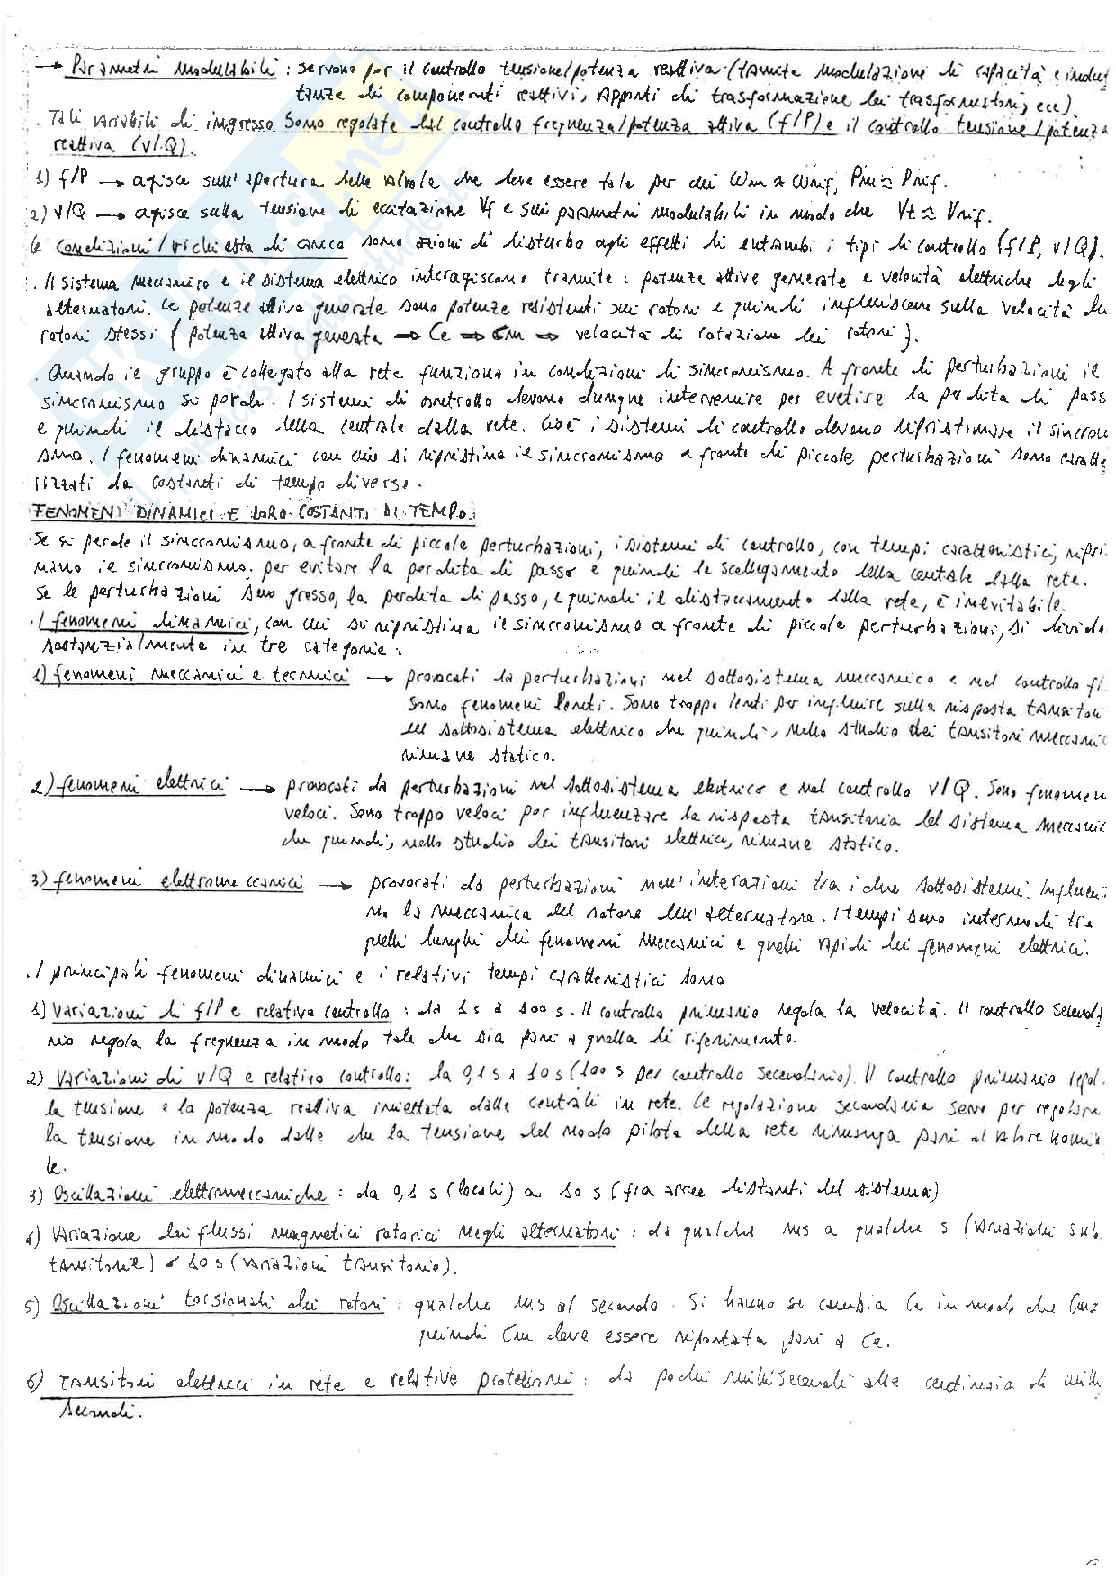 → Parametri modulabili : servono per il controllo tensione/potenza reattiva (tramite modulazione di capacità e indut
tanze di componenti reattivi, rapporti di trasformazione dei trasformatori, ecc).
. Tali variabili di ingresso sono regolate dal controllo frequenza/potenza attiva (f/P) e il controllo tensione/potenza
reattiva (V/Q).
1) f/P → agisce sull'apertura delle valvole che deve essere tale per cui
2) V/Q → agisce sulla tensione di eccitazione Vf e sui parametri modulabili in modo che Vt ≃ Vrif.
Le condizioni/richiesta di carico sono azioni di disturbo agli effetti di entrambi i tipi di controllo (f/P, V/Q).
. Il sistema meccanico e il sistema elettrico interagiscono tramite : potenze attive generate e velocità elettriche degli
alternatori. Le potenze attive generate sono potenze resistenti sui rotori e quindi influiscono sulla velocità dei
rotori stessi { potenza attiva generata → Ce → Cm → velocità di rotazione dei rotori }.
. Quando il gruppo è collegato alla rete funziona in condizioni di sincronismo. A fronte di perturbazioni il
sincronismo si perde. I sistemi di controllo devono dunque intervenire per evitare la perdita di pass
e quindi il distacco della centrale dalla rete. Cioè i sistemi di controllo devono ripristinare il sincron
smo. I fenomeni dinamici con cui si ripristina il sincronismo a fronte di piccole perturbazioni sono caratte
rizzati da costanti di tempo diverse.
FENOMENI DINAMICI E LORO COSTANTI DI TEMPO :
Se si perde il sincronismo, a fronte di piccole perturbazioni, i sistemi di controllo, con tempi caratteristici, ripri
mano il sincronismo. per evitare la perdita di passo e quindi lo scollegamento della centrale dalla rete.
Se le perturbazioni sono grosse, la perdita di passo, e quindi il distaccamento dalla rete, è inevitabile.
. I fenomeni dinamici, con cui si ripristina il sincronismo a fronte di piccole perturbazioni, si divido
sostanzialmente in tre categorie :
1) fenomeni meccanici e termici → provocati da perturbazioni nel sottosistema meccanico e nel controllo f/
Sono fenomeni lenti. Sono troppo lenti per influire sulla risposta transitori
del sottosistema elettrico che quindi, nello studio dei transitori meccanic
rimane statico.
2) fenomeni elettrici → provocati da perturbazioni nel sottosistema elettrico e nel controllo V/Q. Sono fenomeni
veloci. Sono troppo veloci per influenzare la risposta transitoria del sistema meccanic
che quindi, nello studio dei transitori elettrici, rimane statico.
3) fenomeni elettromeccanici → provocati da perturbazioni nell'interazioni tra i due sottosistemi. Influen
no la meccanica del rotore dell'alternatore. I tempi sono intermedi tra
quelli lunghi dei fenomeni meccanici e quelli rapidi dei fenomeni elettrici.
. I principali fenomeni dinamici e i relativi tempi caratteristici sono
1) Variazioni di f/P e relativo controllo : da 1 s a 100 s. Il controllo primario regola la velocità. Il controllo seconda
rio regola la frequenza in modo tale che sia pari a quella di riferimento.
2) Variazioni di V/Q e relativo controllo : da 0,1 s a 10 s (100 s per controllo secondario). Il controllo primario regol
la tensione e la potenza reattiva iniettata dalle centrali in rete. Le regolazione secondaria serve per regolare
la tensione in modo che la tensione del nodo pilota della rete rimanga pari al valore nomin
le.
3) Oscillazioni elettromeccaniche : da 0,1 s (locali) a 10 s (fra aree distanti del sistema)
4) Variazione dei flussi magnetici rotorici negli alternatori : da qualche ms a qualche s (variazioni sub
transitorie) a 10 s (variazioni transitorio).
5) Oscillazioni torsionali dei rotori : qualche ms al secondo. Si hanno se cambia Ce in modo che
quindi Cm deve essere riportata pari a Ce.
6) Transitori elettrici in rete e relative protezioni : da pochi millisecondi alle centinaia di milli
secondi.